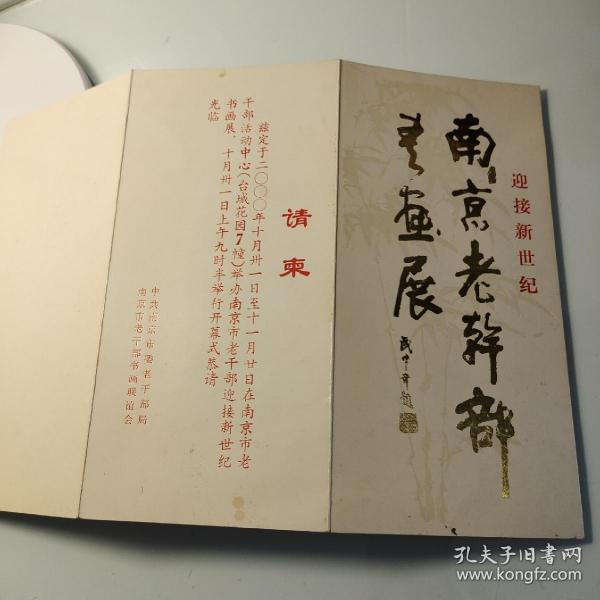 迎接新世纪
南京老幹部
書畫展
武中奇題
请柬
兹定于二〇〇〇年十月卅一日至十一月廿日在南京市老
干部活动中心(台城花园7幢)举办南京市老干部迎接新世纪
书画展，十月卅一日上午九时半举行开幕式恭请
光临
中共南京市委老干部局
南京市老干部书画联谊会
孔夫子旧书网
www.kongfz.com